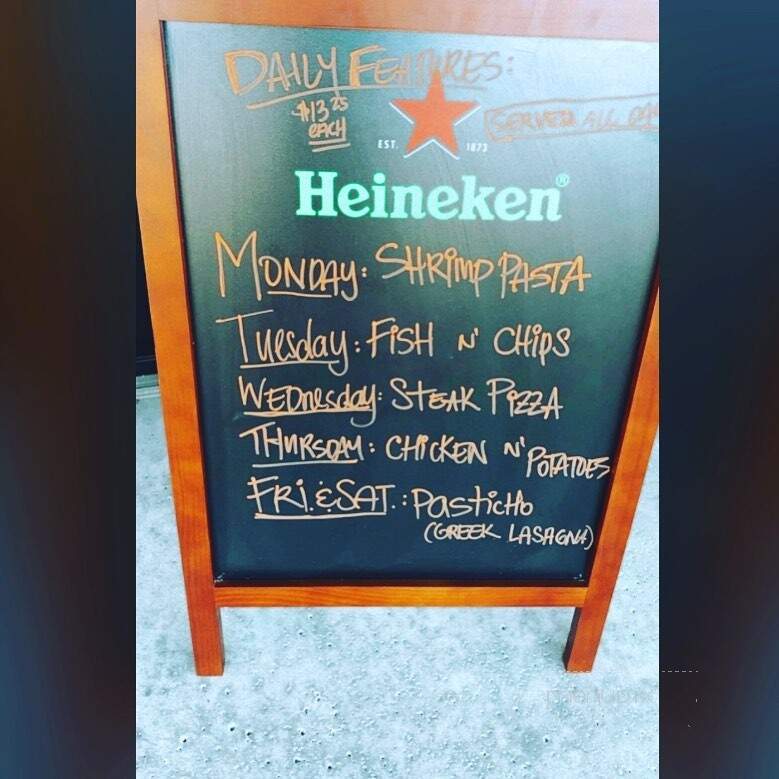 DAILY FEATURES:
$13 25
EACH
SERVED ALL DAY
EST. 1873
Heineken®
MONDAY: SHRIMP PASTA
Tuesday: FISH N' CHIPS
WEDnesday: STEAK PIZZA
THURSDAY: CHICKEN N' POTATOES
FRI. & SAT.: PASTICHO
(GREEK LASAGNA)